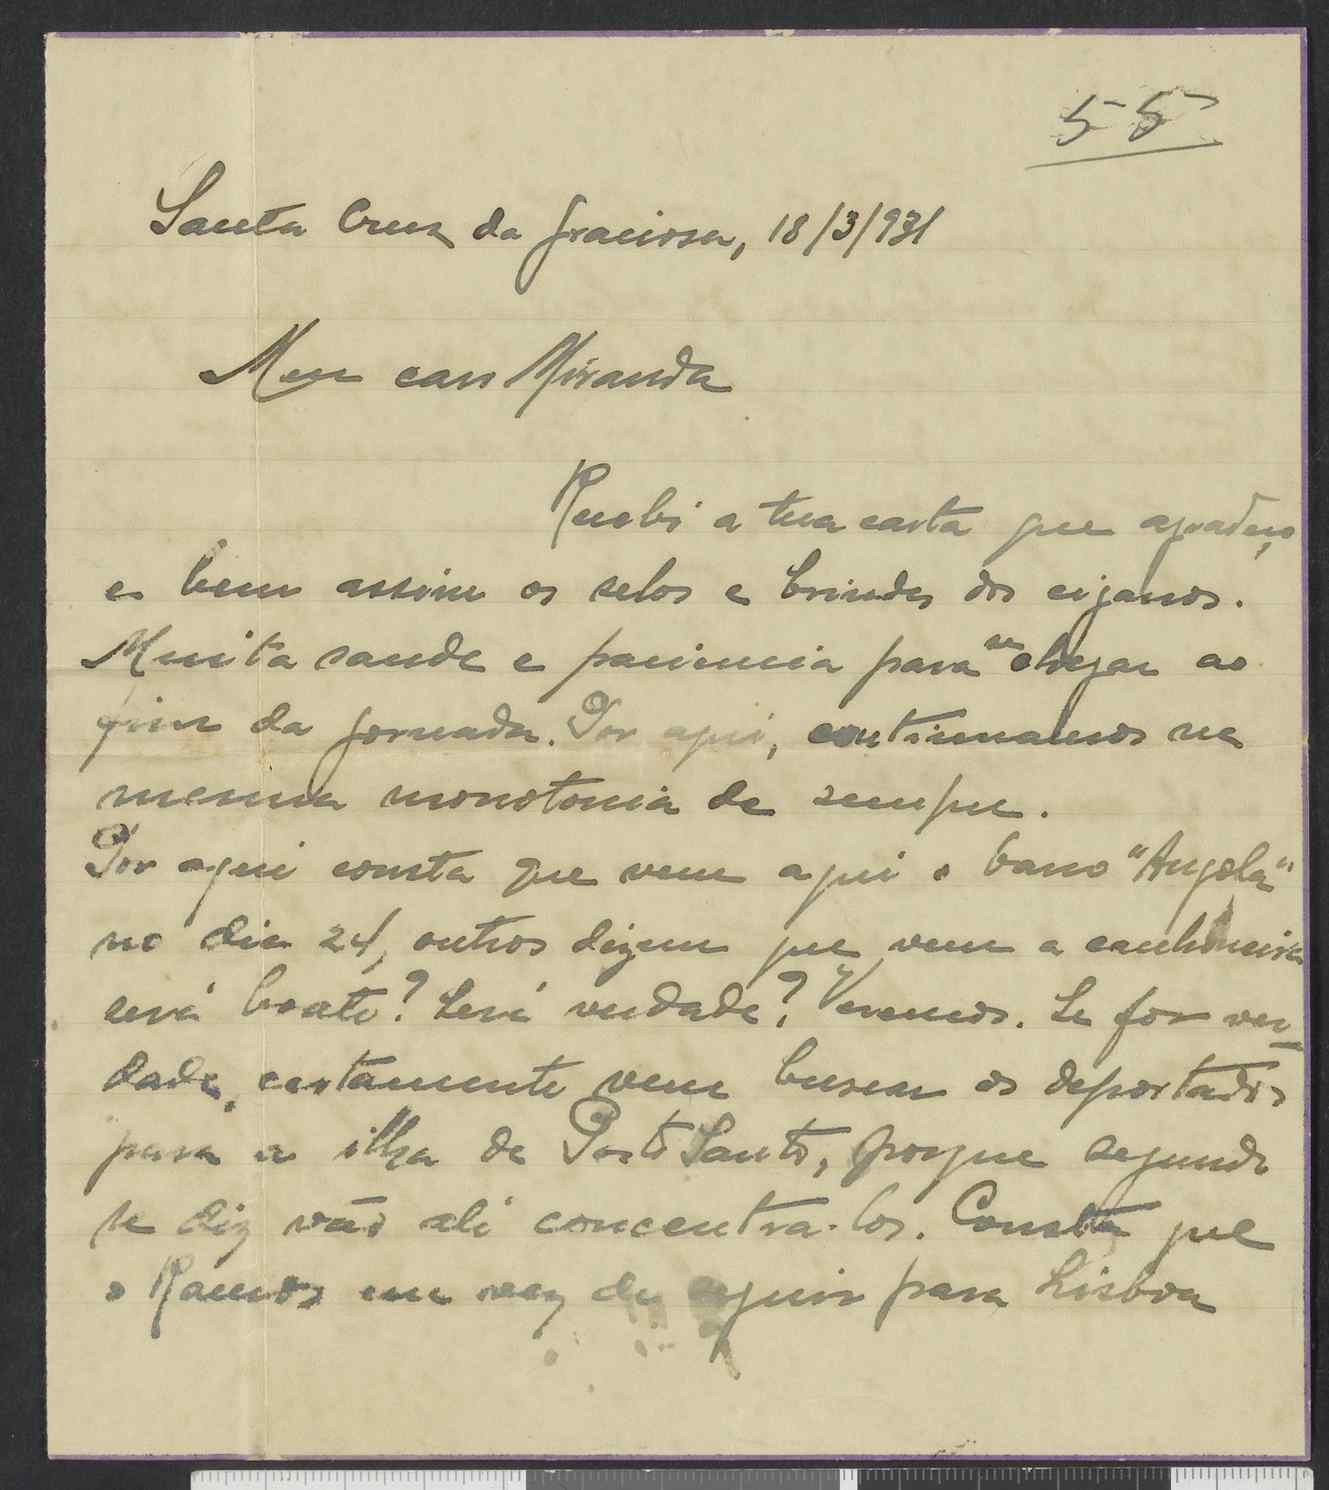 55
Santa Cruz da Graciosa, 18/3/931
Meu caro Miranda
Recebi a tua carta que agradeço
e bem assim os selos e brindes dos ciganos.
Muita saude e paciencia para se chegar ao
fim da jornada. Por aqui, continuamos na
mesma monotonia de sempre.
Por aqui consta que vem aqui o barco "Angola"
no dia 24, outros dizem que vem a canhoneira
será boato? Será verdade? Veremos. Se for ver-
dade, certamente vem buscar os deportados
para a ilha de Porto Santo, porque segundo
se diz vão ali concentra-los. Consta que
o Ramos em vez de seguir para Lisboa